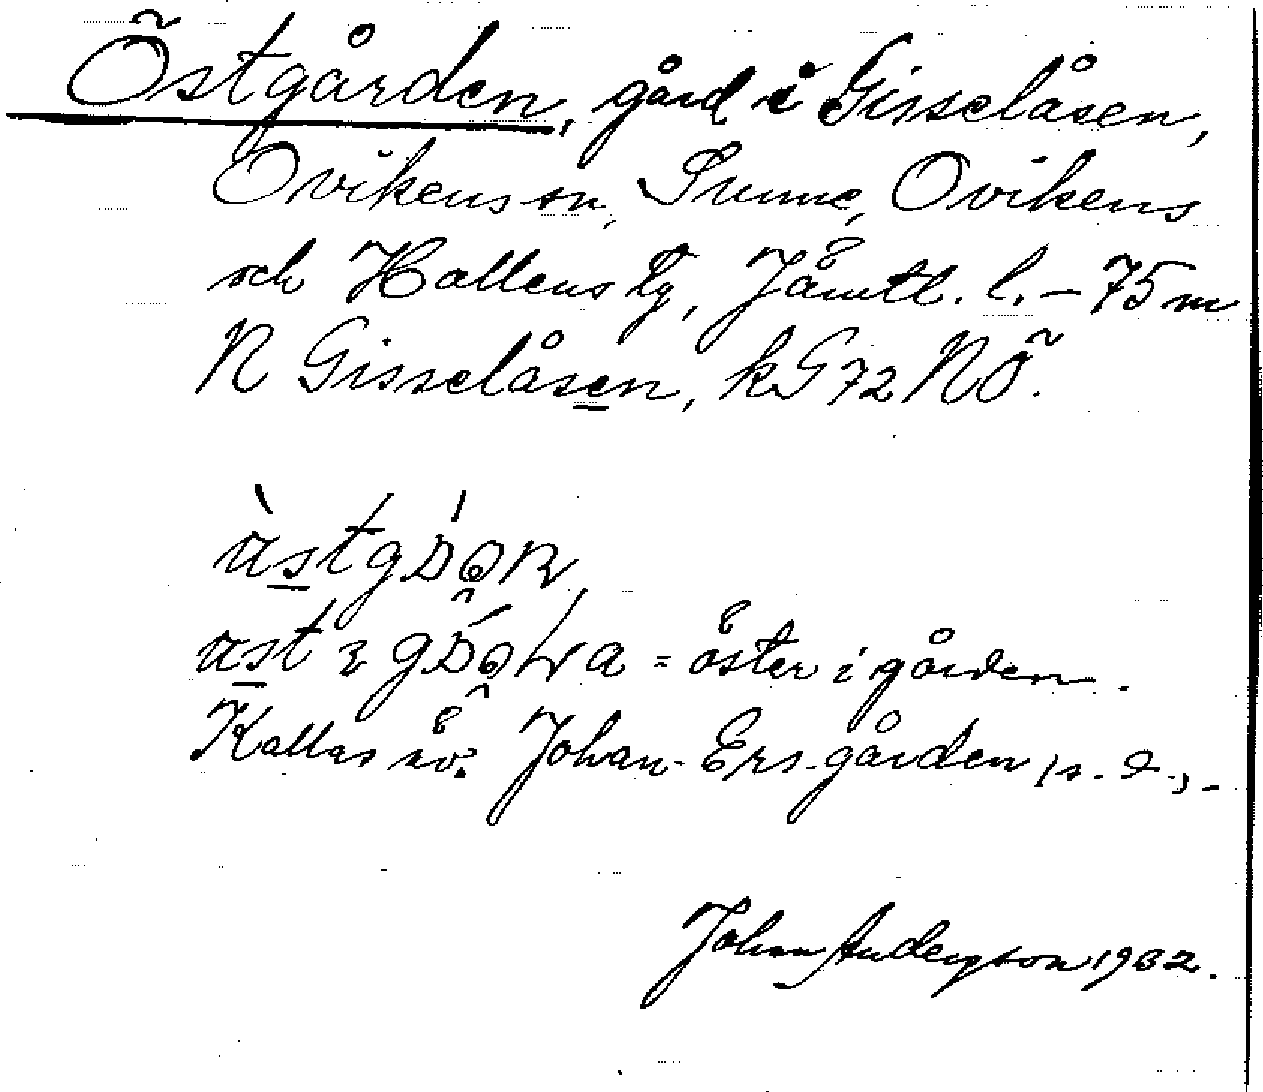 Östgården, gård i Gisselåsen,
Ovikens sn, Sunne, Ovikens
och Hallens tg, Jämtl. l. – 75 m
N Gisselåsen, kG 72 NÖ.
= öster i gården.
Kallas äv. Johan-Ers-gården, s. d., -
Johan Anderson 1932.